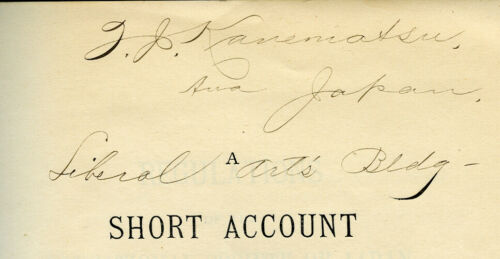 Kanematsu,
Japan.
A
Liberal Art's Bldg-
SHORT ACCOUNT